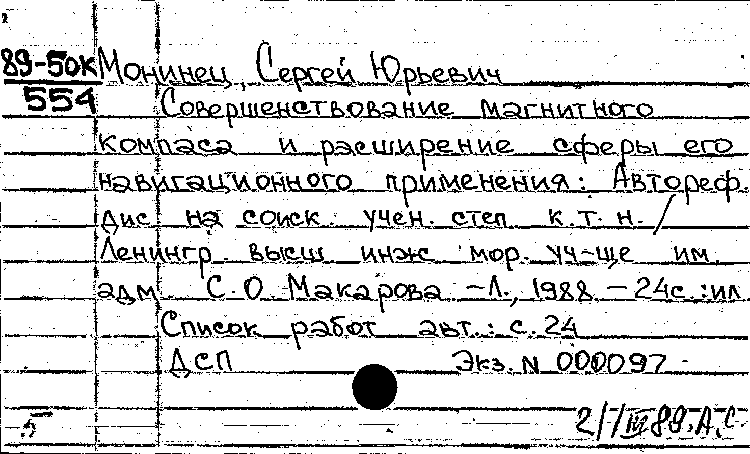 89-50к Монинец, Сергей Юрьевич
554 Совершенствование магнитного
компаса и расширение сферы его
навигационного применения: Автореф.
дис. на соиск. учен. степ к.т.н./
Ленингр. высш инж мор. уч-ще им.
адм. С.О. Макарова -Л., 1988 - 24с.:ил
Список работ авт.: с.24
ДСП Экз. N 000097
5 2/VIII 89. А.С.